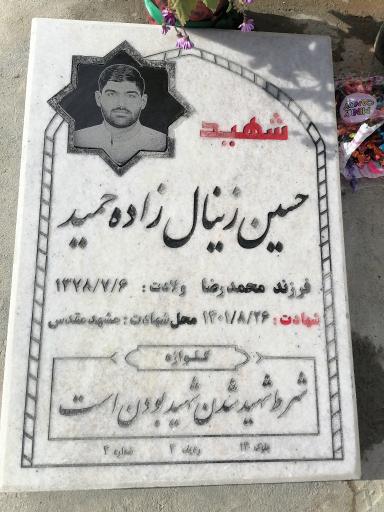 شهید
حسین زینال زاده حمید
فرزند محمدرضا ولادت: ۱۳۷۸/۷/۶
شهادت: ۱۴۰۱/۸/۲۶ محل شهادت: مشهد مقدس
گلواژه
شرط شهید شدن شهید بودن است
بلوک ۱۳ ردیف ۳ شماره ۴